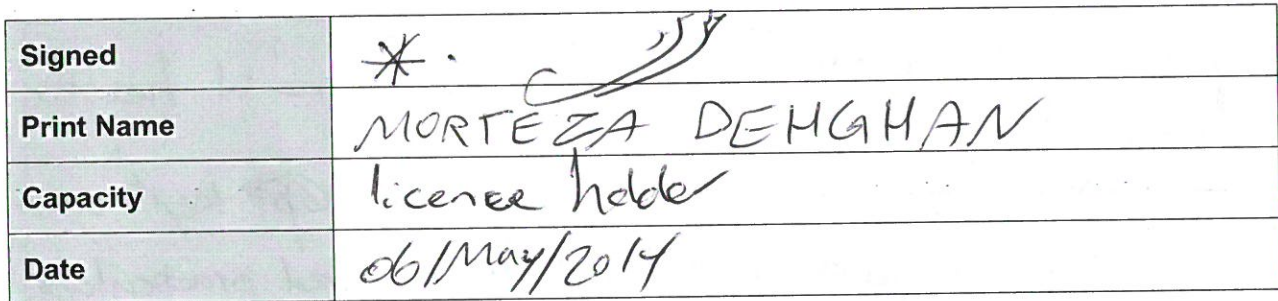 Signed
Print Name MORTEZA DEHGHAN
Capacity license holder
Date 06/May/2014